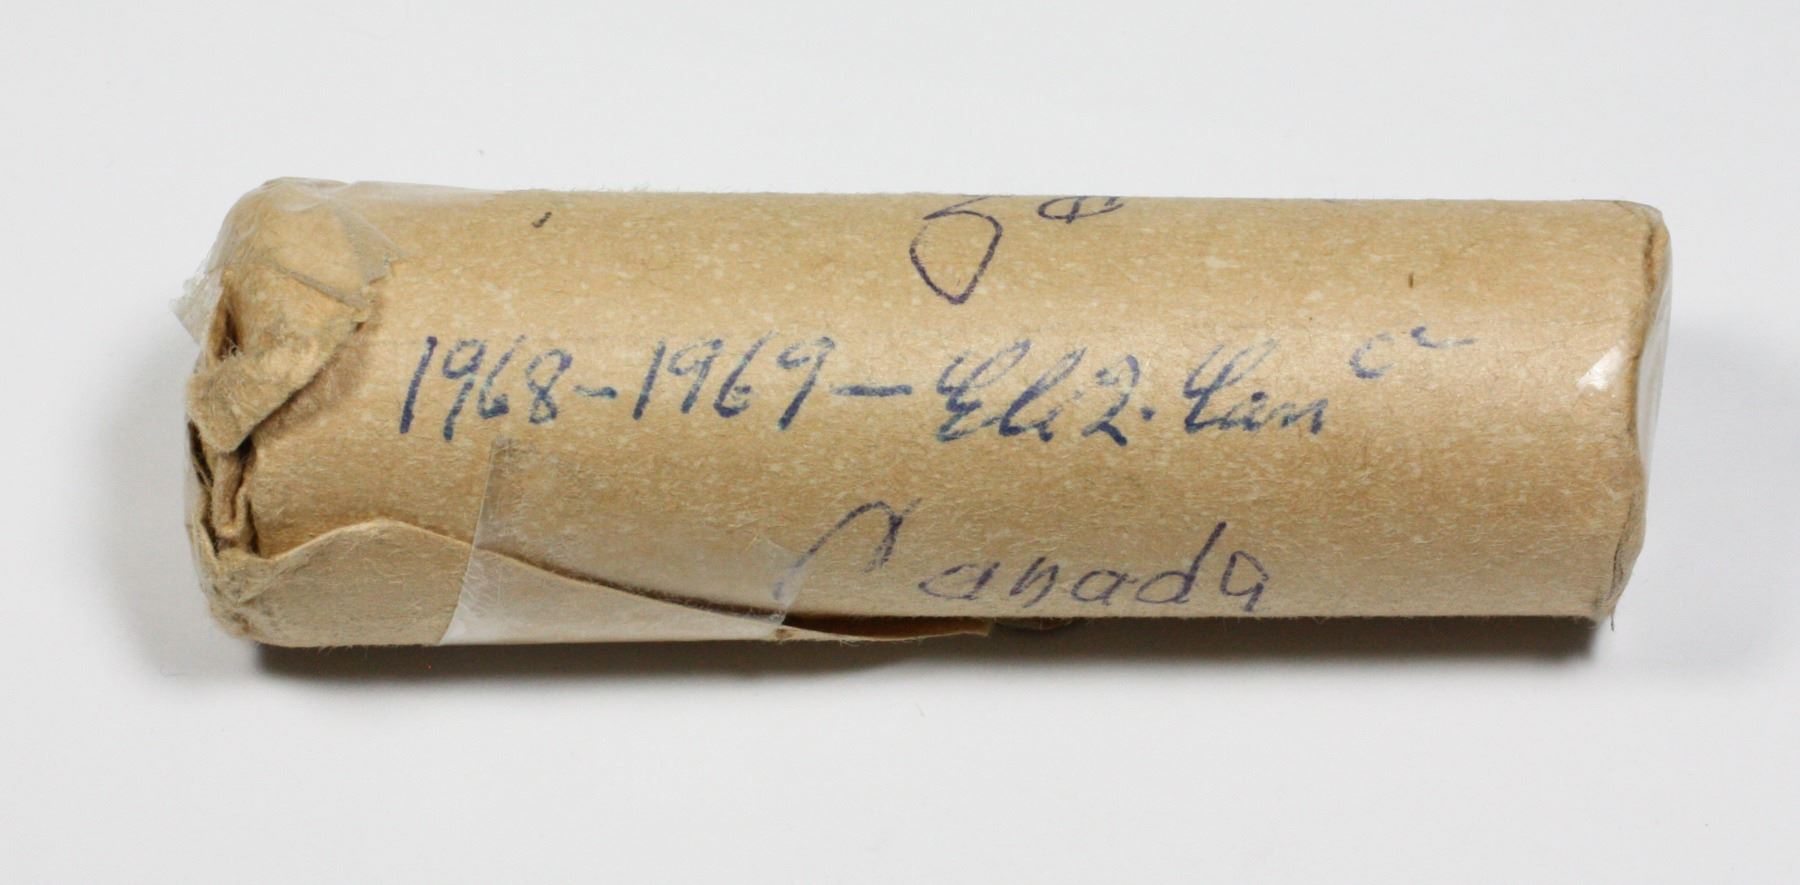 1968-1969-Eliz. Can
Canada